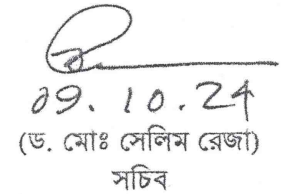 09.10.24
(ড. মোঃ সেলিম রেজা)
সচিব